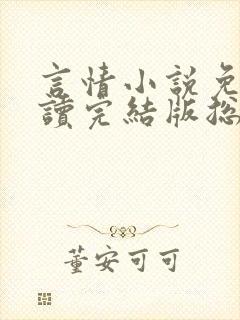 言情小說免
讀完結版總
董安可可